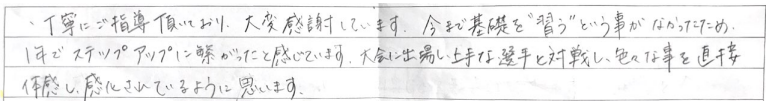 ・丁寧にご指導頂いており、大変感謝しています。今まで基礎を“習う”という事がなかったため、
1年でステップアップに繋がったと感じています。大会に出場し上手な選手と対戦し、色々な事を直接
体感し、感化されているように思います。